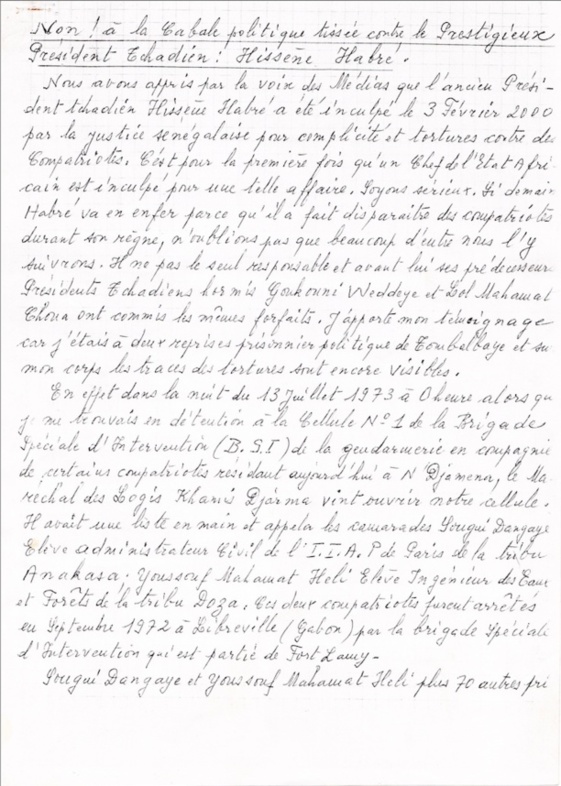 Non ! à la Cabale politique tissée contre le Prestigieux
Président Tchadien : Hissene Habré.
Nous avons appris par la voix des Médias que l'ancien Prési-
dent tchadien Hissene Habré a été inculpé le 3 Février 2000
par la justice senégalaise pour complicité et tortures contre des
Compatriotes. C'est pour la première fois qu'un Chef de l'Etat Afri-
cain est inculpé pour une telle affaire. Soyons sérieux. Si demain
Habré va en enfer parce qu'il a fait disparaitre des compatriotes
durant son règne, n'oublions pas que beaucoup d'entre nous l'y
suivrons. Il ne pas le seul responsable et avant lui ses prédecesseur
Presidents Tchadiens hormis Goukouni Weddeye et Lol Mahamat
Choua ont commis les mêmes forfaits. J'apporte mon témoignage
car j'étais à deux reprises prisonnier politique de Tombalbaye et su
mon corps les traces des tortures sont encore visibles.
En effet dans la nuit du 13 Juillet 1973 à 0 heure alors qu
je me trouvais en détention à la Cellule N° 1 de la Brigade
Spéciale d'Intervention (B.S.I) de la gendarmerie en compagnie
de certains compatriotes residant aujourd'hui à N Djamena, le Ma-
réchal des Logis Khamis Djarma vint ouvrir notre cellule.
Il avait une liste en main et appela les camarades Sougui Dangaye
Elève administrateur Civil de l'I.I.A.P de Paris de la tribu
Anakasa; Youssouf Mahamat Heli Elève Ingénieur des Eaux
et Forêts de la tribu Doza. Ces deux compatriotes furent arrêtés
en Septembre 1972 à Libreville (Gabon) par la brigade Spéciale
d'Intervention qui est partie de Fort Lamy -
Sougui Dangaye et Youssouf Mahamat Heli plus 70 autres pri